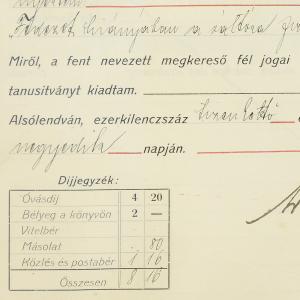 "Fedezet hiányában a váltó
Miről, a fent nevezett megkereső fél jogai
tanusitványt kiadtam.
Alsólendván, ezerkilenczszáz tizenkettő
negyedik napján.
Dijjegyzék:
Óvásdij 4 20
Bélyeg a könyvön 2 —
Vitelbér
Másolat . 80
Közlés és postabér 1 16
Összesen 8 16